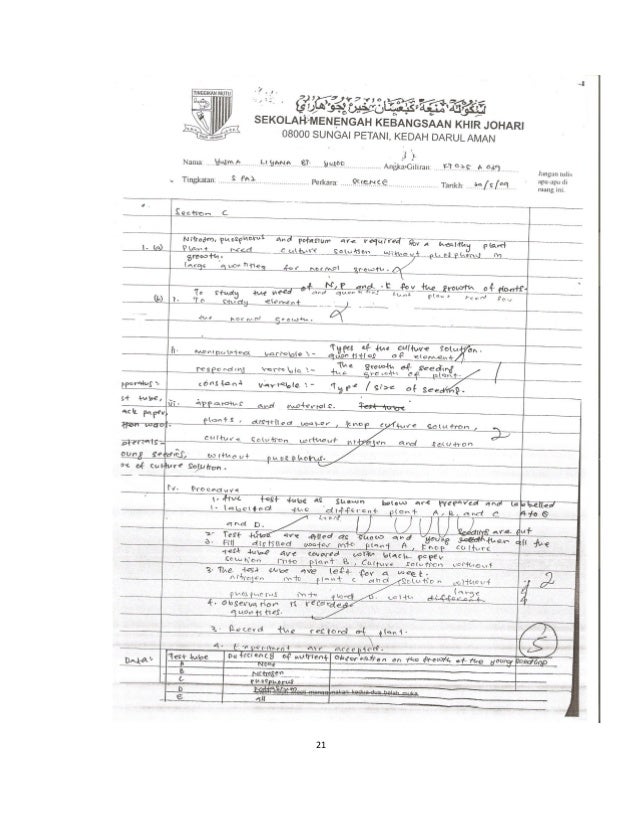 TINGGIKAN MUTU
SEKOLAH MENENGAH KEBANGSAAN KHIR JOHARI
08000 SUNGAI PETANI, KEDAH DARUL AMAN
Nama LIYANA BT Angka Giliran
Tingkatan 5 Perkara SCIENCE Tarikh
Jangan tulis
apa-apa di
ruang ini.
Section C
Nitrogen, phosphorus and potasium are required for a healthy plant
1. (a) Plant need culture solution without phosphorus in
growth.
large quantities for normal growth.
To study the need of N, P and K for the growth of plants.
(b) i. To study element and quantities that plant need for
the normal growth.
Types of the culture solution.
ii. manipulated variable :- quantities of element
The growth of seeding
responding variable :- the growth of plant.
constant variable :- Type / size of seeding.
iii. Apparatus and materials. Test tube
plants, distilled water, knop culture solution,
culture solution without nitrogen and solution
without phosphorus.
apparatus :
st tube,
ack paper,
materials -
oung seedings,
pe of culture solution.
1
2
iv. Procedure
1. five test tube as shown below are prepared and labelled
1. labelled the different plant A, B, and C A to E
and D.
seeding are put
2. Test tube are filled as show and young then all the
2. Fill distilled water into plant A, knop culture
test tube are covered with black paper
solution into plant B, Culture solution without
3. The test tube are left for a week.
nitrogen into plant C and solution without
phosphorus into plant D with different
large
4. Observation is recorded.
quantities.
3. Record the of plant.
4. Experiment are accepted.
2
5
Data: Test tube Deficiency of nutrient Observation on the Growth of the young seedling
A None
B Nitrogen
C phosphorus
D
E all
menggunakan kedua-dua belah muka
21